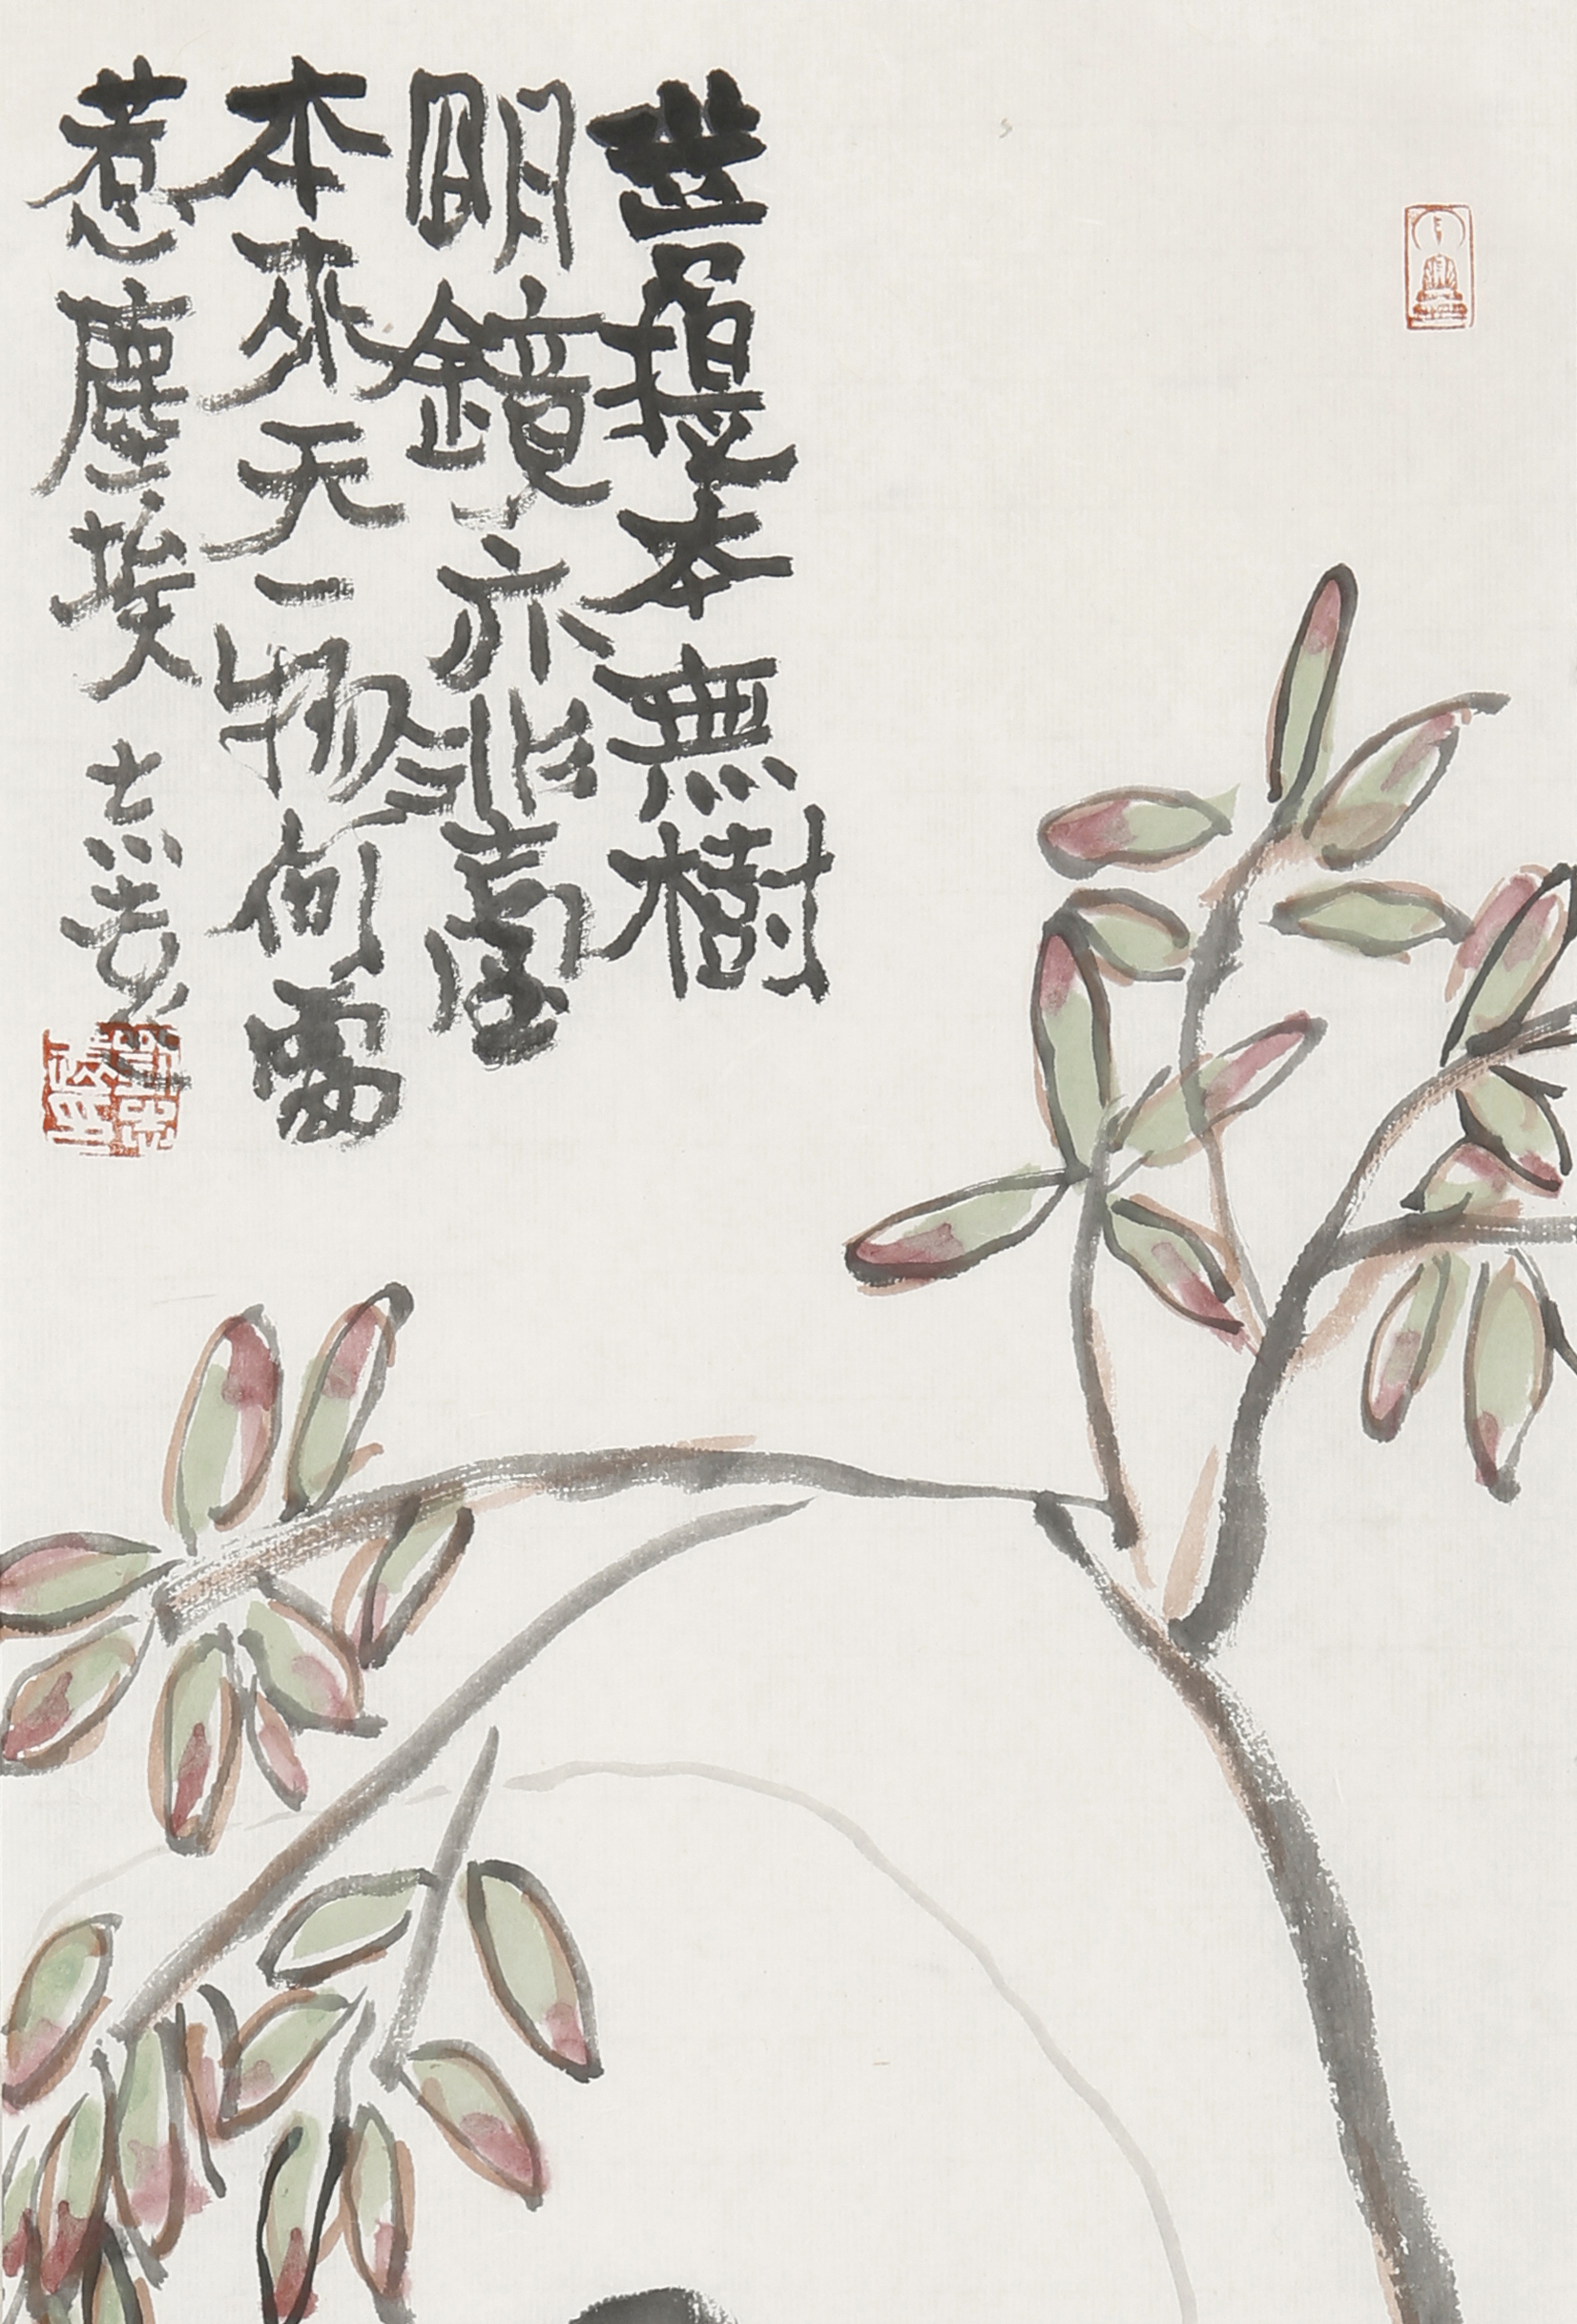 菩提本無樹
明鏡亦非臺
本來无一物何處
惹塵埃